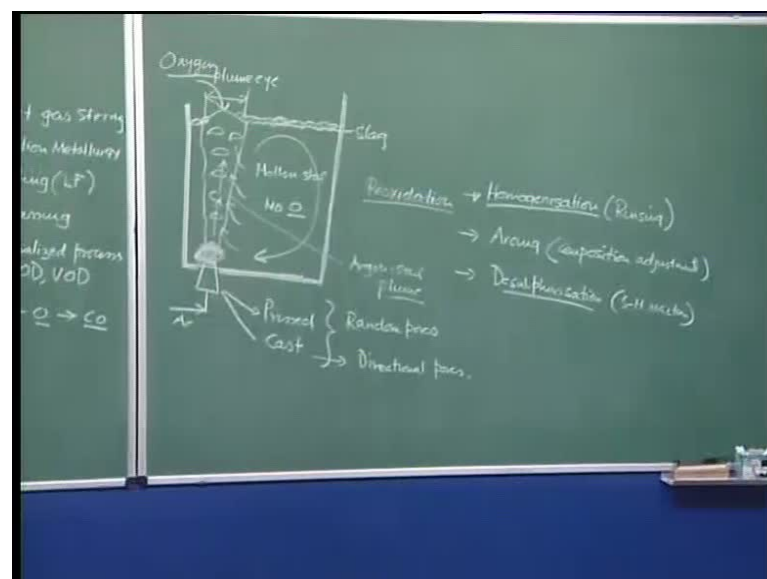 gas stirring
tion Metallurgy
ing (LF)
ialized process
OD, VOD
O → CO
Oxygen
plume eye
Slag
Molten steel
No O
Argon-steel
plume
Ar
Pressed
Cast
Random pores
→ Directional pores.
Reoxidation → Homogenisation (Rinsing)
→ Arcing (composition adjustment)
→ Desulphurisation (S-M reaction)